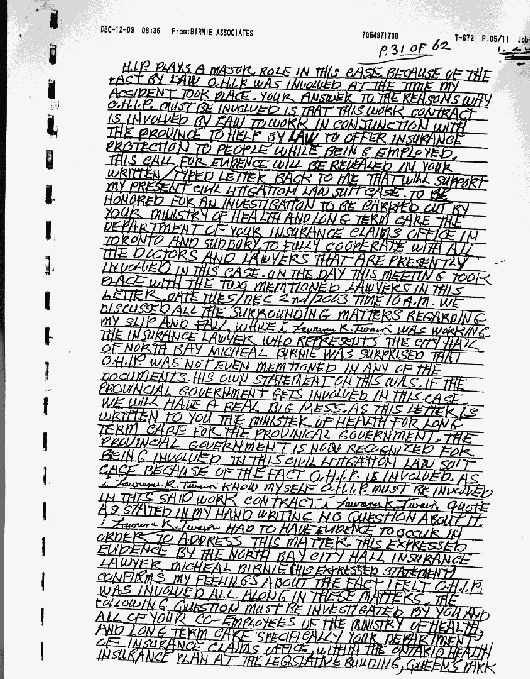 DEC-12-08 08:36 From:BIRNIE ASSOCIATES 7054971710 T-672 P.05/11
P.31 OF 62
H.I.P PLAYS A MAJOR ROLE IN THIS CASE BECAUSE OF THE
FACT BY LAW O.H.I.P. WAS INVOLVED AT THE TIME MY
ACCIDENT TOOK PLACE. YOUR ANSWER TO THE REASONS WHY
O.H.I.P. MUST BE INVOLVED IS THAT THIS WORK CONTRACT
IS INVOLVED BY LAW TO WORK IN CONJUNCTION WITH
THE PROVINCE TO HELP BY LAW TO OFFER INSURANCE
PROTECTION TO PEOPLE WHILE BEING EMPLOYED.
THIS CALL FOR EVIDENCE WILL BE REVEALED IN YOUR
WRITTEN/TYPED LETTER BACK TO ME THAT WILL SUPPORT
MY PRESENT CIVIL LITIGATION LAW SUIT CASE TO BE
HONORED FOR AN INVESTIGATION TO BE CARRIED OUT BY
YOUR MINISTRY OF HEALTH AND LONG TERM CARE THE
DEPARTMENT OF YOUR INSURANCE CLAIMS OFFICE IN
TORONTO AND SUDBURY TO FULLY COOPERATE WITH ALL
THE DOCTORS AND LAWYERS THAT ARE PRESENTLY
INVOLVED IN THIS CASE. ON THE DAY THIS MEETING TOOK
PLACE WITH THE TWO MENTIONED LAWYERS IN THIS
LETTER, DATE TUES/DEC 2nd/2003 TIME 10 A.M. WE
DISCUSSED ALL THE SURROUNDING MATTERS REGARDING
MY SLIP AND FALL WHILE i WAS WORKING
THE INSURANCE LAWYER WHO REPRESENTS THE CITY HALL
OF NORTH BAY MICHEAL BIRNIE WAS SURPRISED THAT
O.H.I.P WAS NOT EVEN MENTIONED IN ANY OF THE
DOCUMENTS HIS OWN STATEMENT ON THIS WAS. IF THE
PROVINCIAL GOVERNMENT GETS INVOLVED IN THIS CASE
WE WILL HAVE A REAL BIG MESS. AS THIS LETTER IS
WRITTEN TO YOU THE MINISTER OF HEALTH FOR LONG
TERM CARE FOR THE PROVINCAL GOVERNMENT. THE
PROVINCIAL GOVERNMENT IS NOW RECOGNIZED FOR
BEING INVOLVED IN THIS CIVIL LITIGATION LAW SUIT
CASE BECAUSE OF THE FACT O.H.I.P. IS INVOLVED. AS
i KNOW MYSELF O.H.I.P. MUST BE INVOLVED
IN THIS SAID WORK CONTRACT i QUOTE
AS STATED IN MY HAND WRITING NO QUESTION ABOUT IT.
i HAD TO HAVE EVIDENCE TO OCCUR IN
ORDER TO ADDRESS THIS MATTER. THIS EXPRESSED
EVIDENCE BY THE NORTH BAY CITY HALL INSURANCE
LAWYER MICHEAL BIRNIE (HIS EXPRESSED STATEMENT)
CONFIRMS MY FEELINGS ABOUT THE FACT I FELT O.H.I.P.
WAS INVOLVED ALL ALONG IN THESE MATTERS. THE
FOLLOWING QUESTION MUST BE INVESTIGATED BY YOU AND
ALL OF YOUR CO-EMPLOYEES OF THE MINISTRY OF HEALTH
AND LONG TERM CARE SPECIFICALLY YOUR DEPARTMENT
OF INSURANCE CLAIMS OFFICE, WITHIN THE ONTARIO HEALTH
INSURANCE PLAN AT THE LEGISLATIVE BUILDING, QUEEN'S PARK